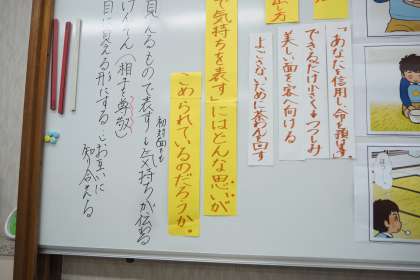 し方
「あなたを信用し、命を預けます」
できるだけ小さくつつしみ
美しい面を客へ向ける
よごさないために茶わんを回す
で気持ちを表す」にはどんな思いが
こめられているのだろうか。
初対面でも
見えるもので表すも気持ちが伝わる
けんそん(相手を尊敬)
目に見える形にする お互いに
知り合える